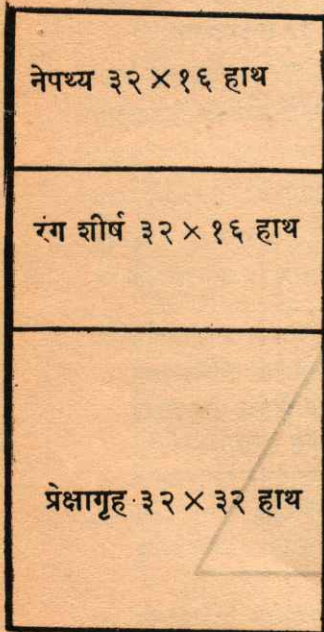 नेपथ्य ३२×१६ हाथ
रंग शीर्ष ३२×१६ हाथ
प्रेक्षागृह ३२×३२ हाथ